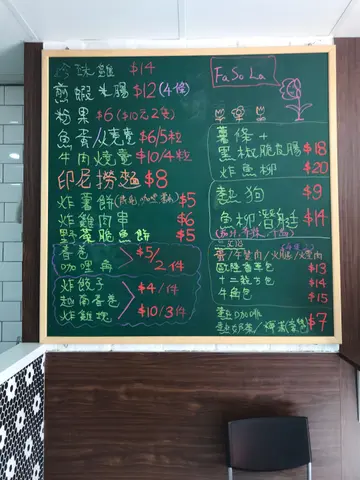 珠雞 $14
煎蝦米腸 $12 (4條)
粉果 $6 ($10元2隻)
魚蛋/燒賣 $6/5粒
牛肉燒賣 $10/4粒
印尼撈麵 $8
炸薯餅 $5
炸雞肉串 $6
野菜脆魚餅 $5
春卷
咖喱角
$5/2件
炸餃子
越南春卷
$4/件
炸雞塊 $10/3件
FaSoLa
薯條+
黑椒脆皮腸 $18
炸魚柳 $20
熱狗 $9
魚柳潛艇 $14
三文治
蛋/牛肉/火腿/
$13
十二穀方包 $14
牛角包 $15
$7